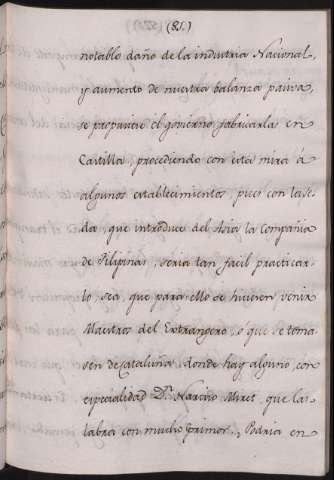 (81.)
notable daño de la industria Nacional,
y aumento de nuestra balanza pasiva,
se propusiere el govierno fabricarlas en
Castilla, procediendo con esta mira á
algunos establecimientos, pues con la Se-
da, que introduce del Asia la Compañia
de Filipinas, seria tan facil practicar-
lo, sea, que para ello se hiciesen venir
Maestros del Extrangero, o que se toma-
sen de Cataluña donde hay alguno, con
especialidad Dn. Narciso Miret, que las
labra con mucho primor. Podria en